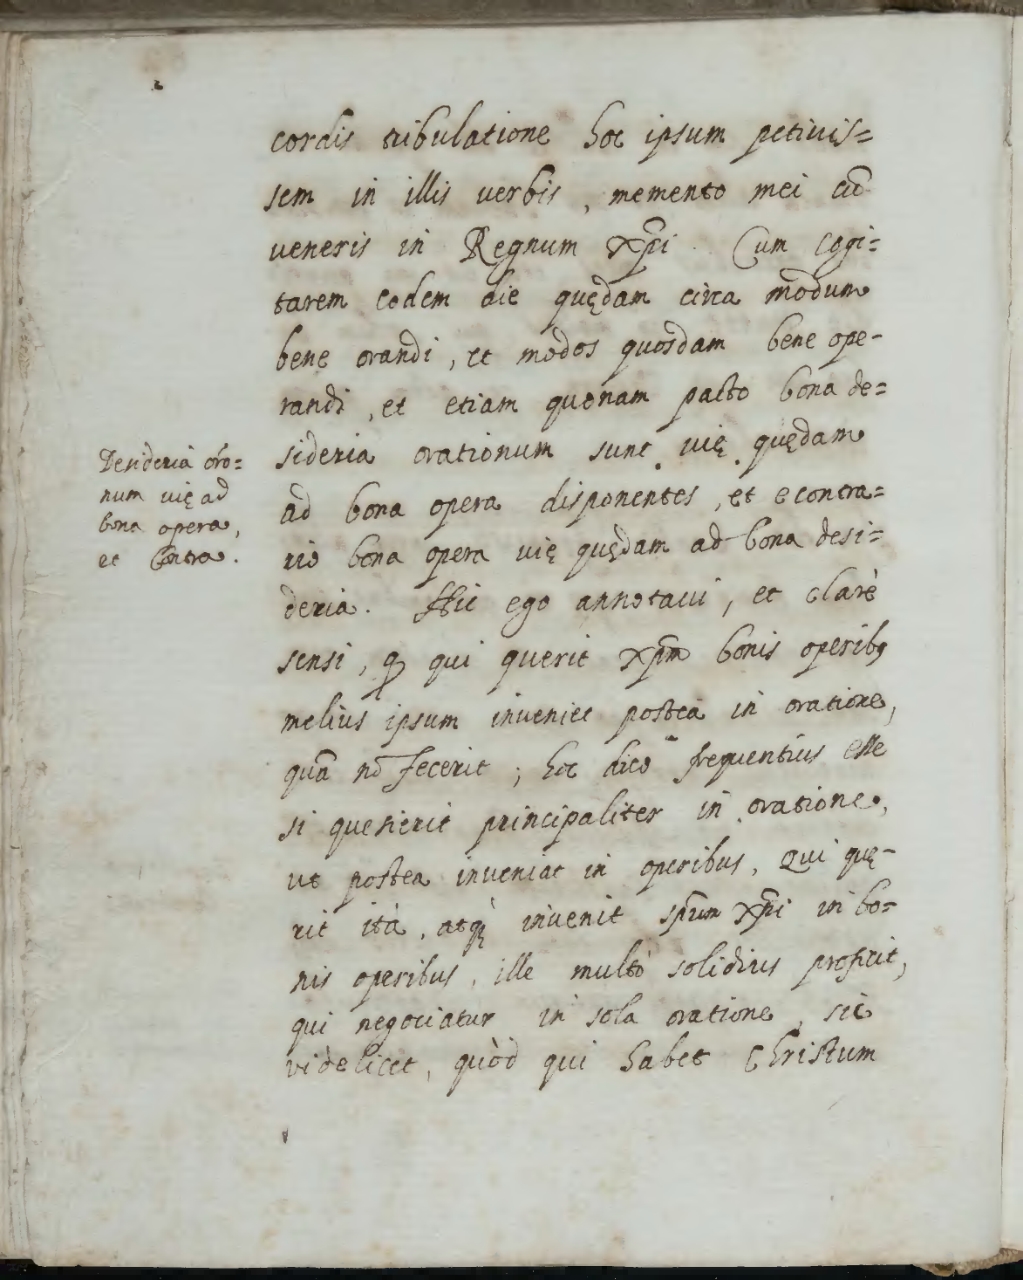 cordis tribulatione hoc ipsum petiuis=
sem in illis verbis, memento mei cũ
veneris in Regnum xp̃i. Cum cogi=
tarem eodem die quędam circa modum
bene orandi, et modos quosdam bene ope-
randi, et etiam quonam pacto bona de=
sideria orationum sunt uię quędam
ad bona opera disponentes, et econtra=
rio bona opera uię quędam ad bona desi=
deria. Hic ego annotaui, et clarè
sensi, qꝫ qui querit xp̃m bonis operibꝰ
meliùs ipsum inueniet posteà in oratione,
quã nõ fecerit; hoc dico frequentiùs esse
si quesierit principaliter in oratione,
ut postea inueniat in operibus. Qui quę-
rit ità, atqꝫ inuenit sp̃um xp̃i in bo=
nis operibus, ille multò solidius proficit,
qui negociatur in sola oratione, sic
videlicet, quòd qui habet Christum
Desideria oro=
num uię ad
bona opera,
et contra.